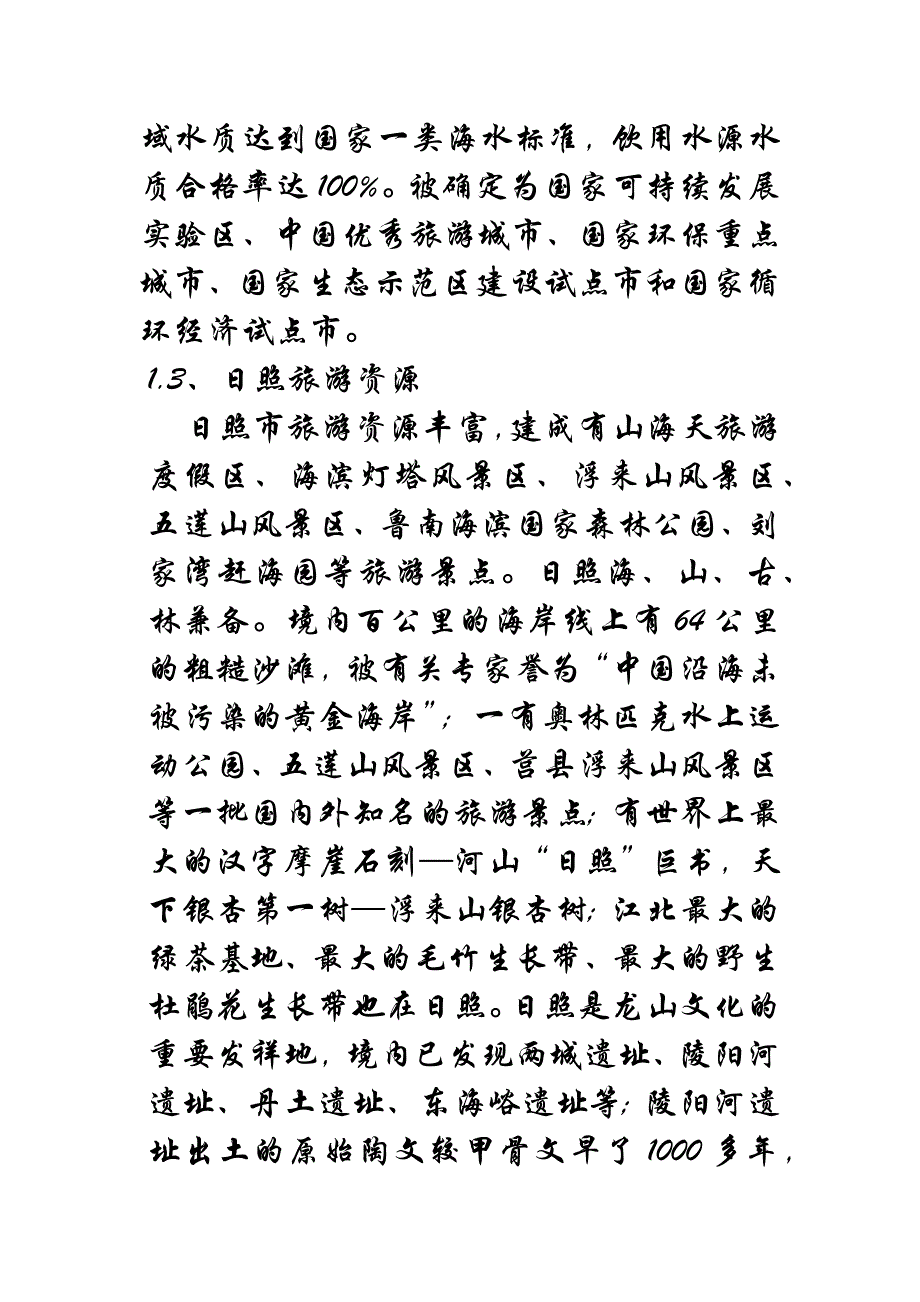 域水质达到国家一类海水标准，饮用水源水
质合格率达100%。被确定为国家可持续发展
实验区、中国优秀旅游城市、国家环保重点
城市、国家生态示范区建设试点市和国家循
环经济试点市。
1.3、日照旅游资源
日照市旅游资源丰富，建成有山海天旅游
度假区、海滨灯塔风景区、浮来山风景区、
五莲山风景区、鲁南海滨国家森林公园、刘
家湾赶海园等旅游景点。日照海、山、古、
林兼备。境内百公里的海岸线上有64公里
的粗糙沙滩，被有关专家誉为“中国沿海未
被污染的黄金海岸”；一有奥林匹克水上运
动公园、五莲山风景区、莒县浮来山风景区
等一批国内外知名的旅游景点；有世界上最
大的汉字摩崖石刻—河山“日照”巨书，天
下银杏第一树—浮来山银杏树；江北最大的
绿茶基地、最大的毛竹生长带、最大的野生
杜鹃花生长带也在日照。日照是龙山文化的
重要发祥地，境内已发现两城遗址、陵阳河
遗址、丹土遗址、东海峪遗址等；陵阳河遗
址出土的原始陶文较甲骨文早了1000多年，